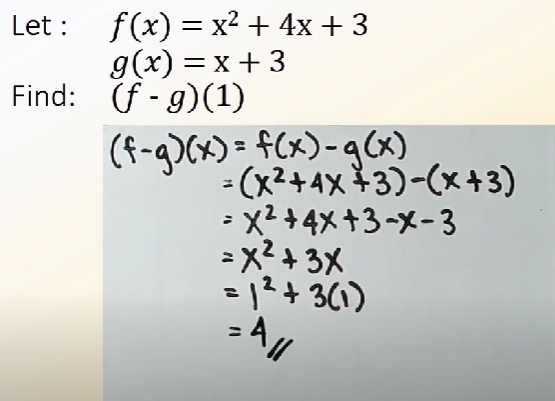 Let : f(x) = x² + 4x + 3
g(x) = x + 3
Find: (f - g)(1)
(f-g)(x) = f(x) - g(x)
= (x² + 4x + 3) - (x + 3)
= x² + 4x + 3 - x - 3
= x² + 3x
= 1² + 3(1)
= 4 //